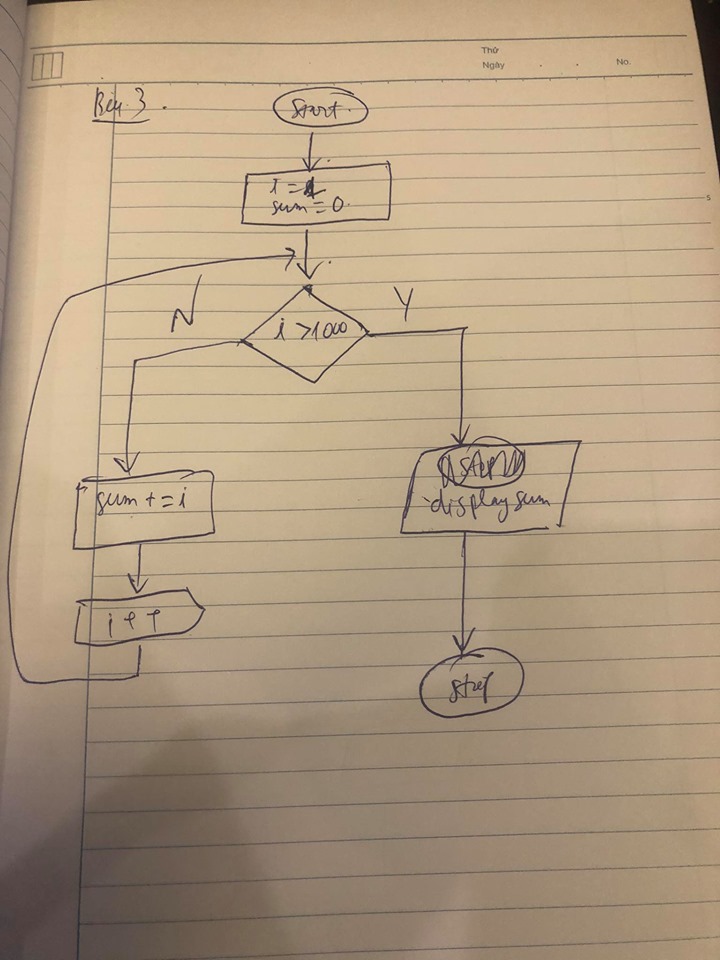 Thứ
Ngày . . No.
Bài 3.
Start
i = 1
sum = 0
N
Y
i > 1000
sum += i
display sum
i++
stop
5